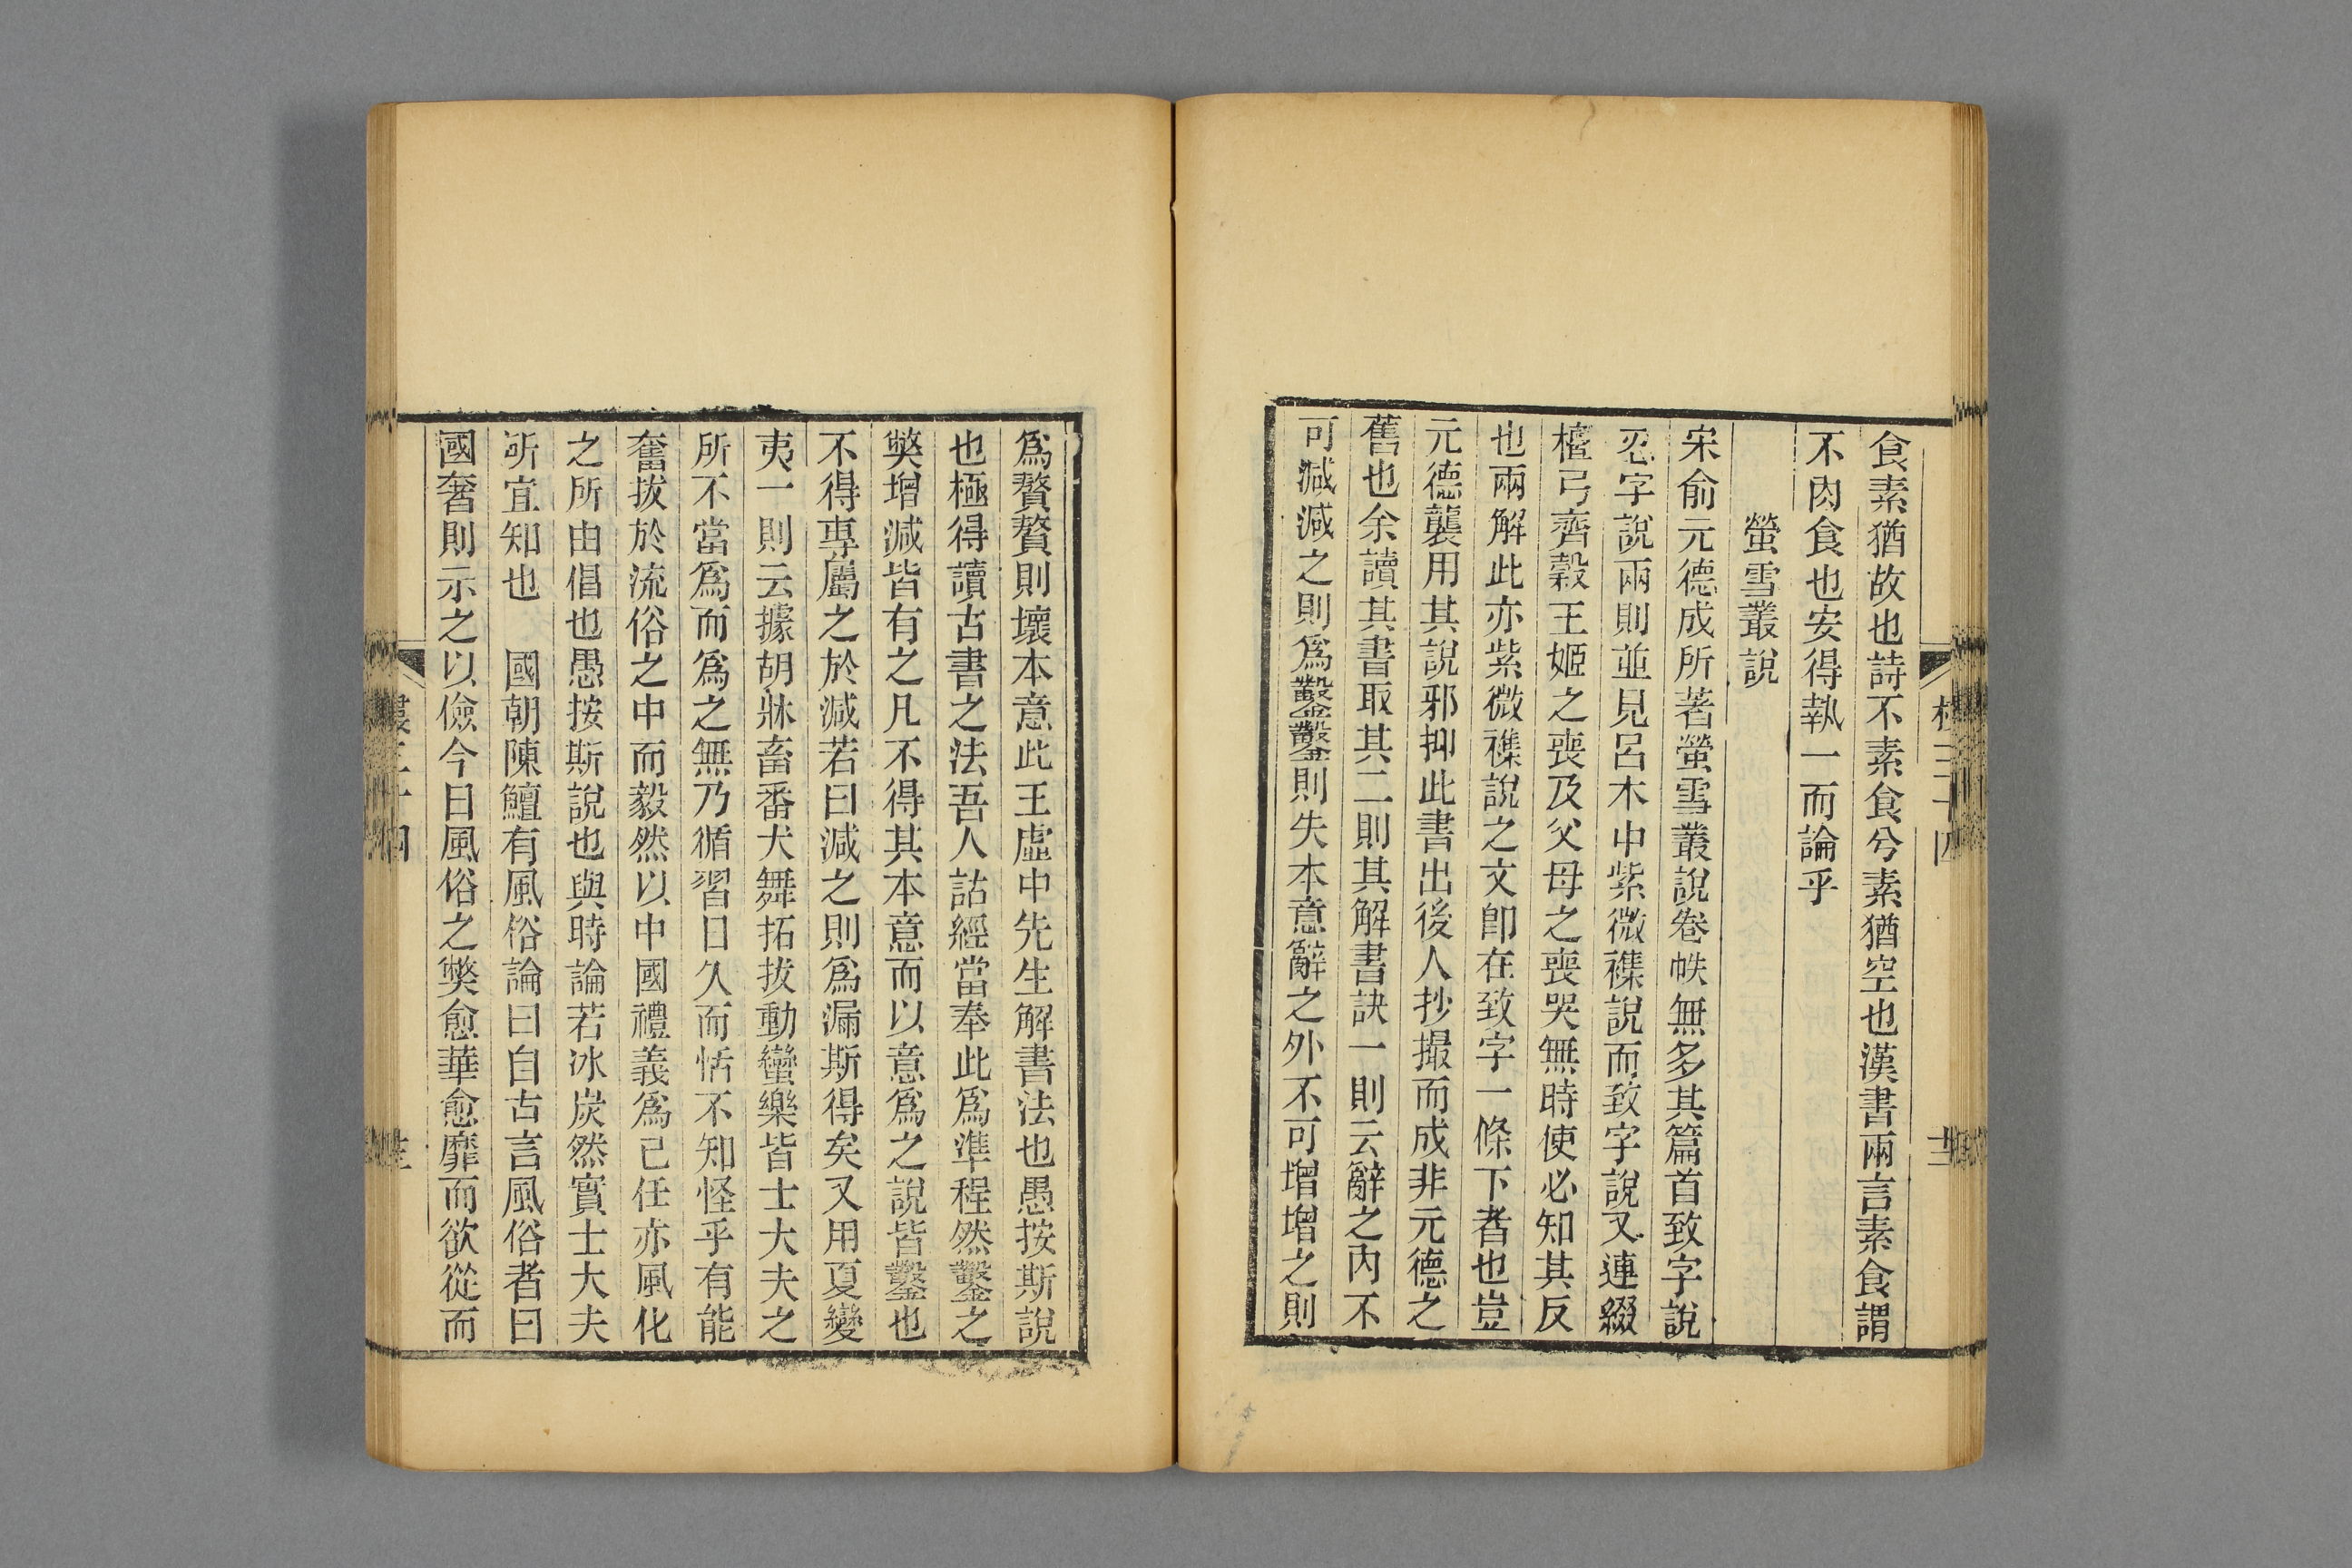 食素猶故也詩不素食兮素猶空也漢書兩言素食謂
不肉食也安得執一而論乎
螢雪叢說
宋俞元德成所著螢雪叢說卷帙無多其篇首致字說
忍字說兩則並見呂木中紫微襍說而致字說又連綴
檀弓齊穀王姬之喪及父母之喪哭無時使必知其反
也兩解此亦紫微襍說之文卽在致字一條下者也豈
元德襲用其說邪抑此書出後人抄撮而成非元德之
舊也余讀其書取其二則其解書訣一則云辭之內不
可減減之則爲鑿鑿則失本意辭之外不可增增之則
爲贅贅則壞本意此王虛中先生解書法也愚按斯說
也極得讀古書之法吾人詁經當奉此爲準程然鑿之
獘增減皆有之凡不得其本意而以意爲之說皆鑿也
不得專屬之於減若曰減之則爲漏斯得矣又用夏變
夷一則云據胡牀畜番犬舞拓拔動蠻樂皆士大夫之
所不當爲而爲之無乃循習日久而恬不知怪乎有能
奮拔於流俗之中而毅然以中國禮義爲己任亦風化
之所由倡也愚按斯說也與時論若冰炭然實士大夫
所宜知也　國朝陳鱣有風俗論曰自古言風俗者曰
國奢則示之以儉今日風俗之獘愈華愈靡而欲從而